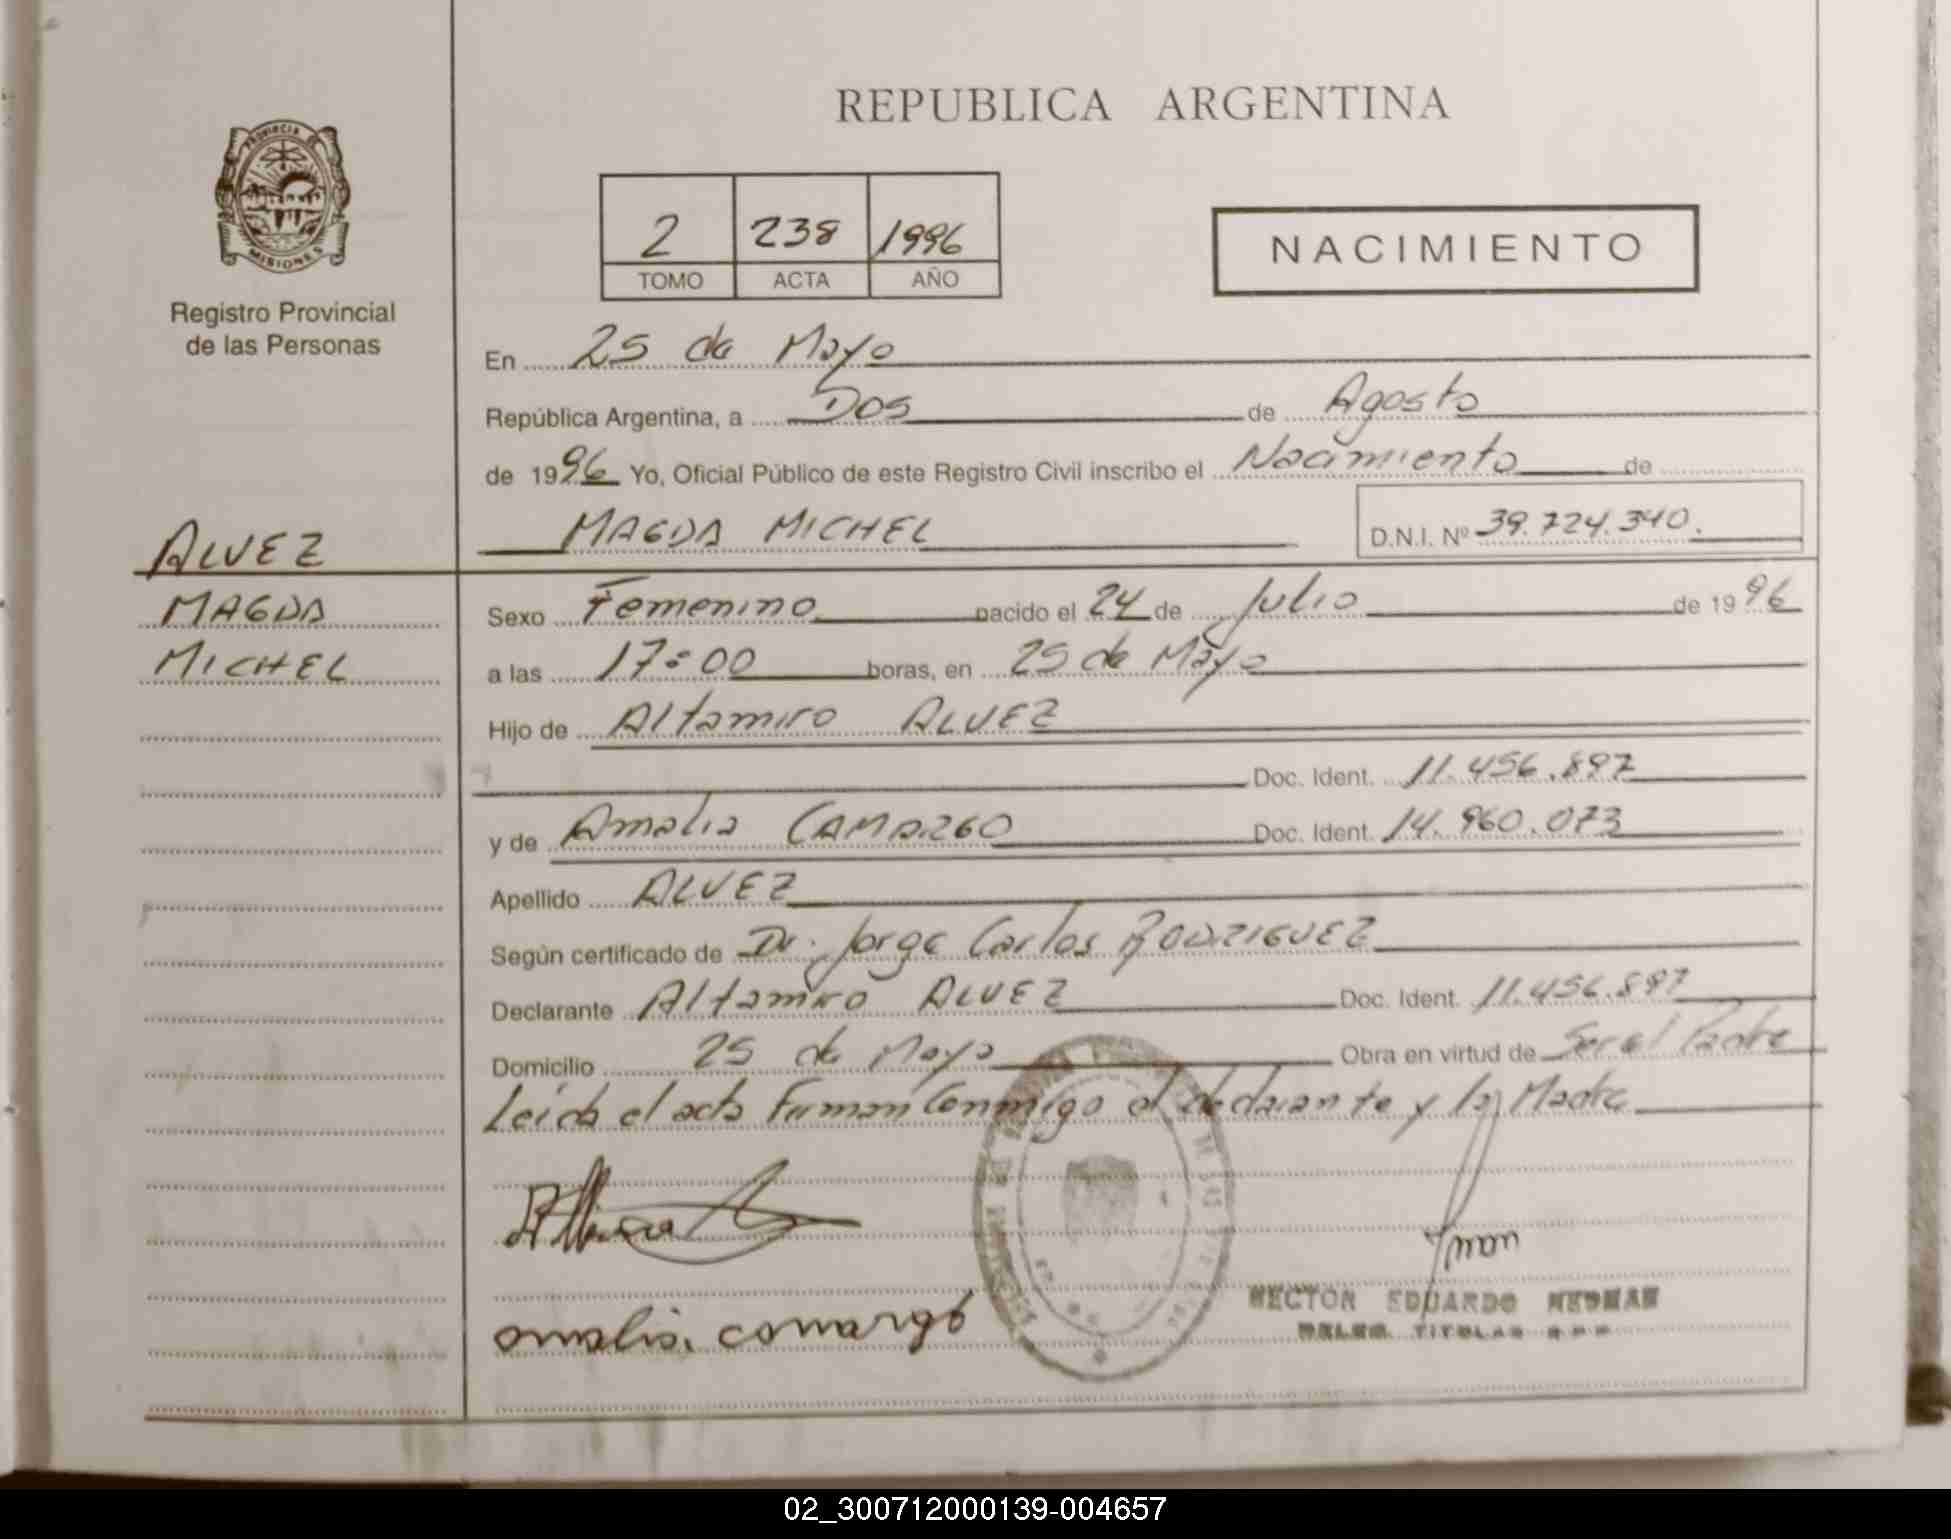 REPUBLICA ARGENTINA
PROVINCIA DE
MISIONES
Registro Provincial
de las Personas
2 238 1996
TOMO ACTA AÑO
NACIMIENTO
En 25 de Mayo
República Argentina, a Dos de Agosto
de 1996 Yo, Oficial Público de este Registro Civil inscribo el Nacimiento de
MAGDA MICHEL D.N.I. Nº 39.724.340.
ALVEZ
MAGDA
MICHEL
Sexo Femenino nacido el 24 de Julio de 1996
a las 17=00 horas, en 25 de Mayo
Hijo de Altamiro ALVEZ
Doc. Ident. 11.456.897
y de Amalia CAMARGO Doc. Ident. 14.960.073
Apellido ALVEZ
Según certificado de Dr. Jorge Carlos RODRIGUEZ
Declarante Altamiro ALVEZ Doc. Ident. 11.456.897
Domicilio 25 de Mayo Obra en virtud de Ser el Padre
Leida el acta Firman Conmigo el declarante y la Madre
amalia. camargo
HECTOR EDUARDO
TITULAR
02_300712000139-004657